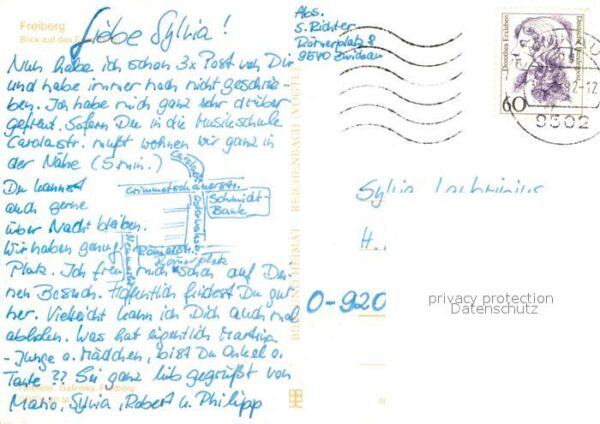 Freiberg
Blick auf das
Liebe Sylvia!
Nun habe ich schon 3x Post von Dir
und habe immer noch nicht geschrie-
ben. Ich habe mich ganz sehr drüber
gefreut. Sofern Du in die Musikschule
Carolastr. mußt wohnen wir ganz in
der Nähe (5 min.)
Du kannst
auch gerne
über Nacht bleiben.
Wir haben genug
Platz. Ich freu mich schon auf Dei-
nen Besuch. Hoffentlich findest Du gut
her. Vielleicht kann ich Dich auch mal
abholen. Was hat eigentlich Martina
- Junge o. Mädchen, bist Du Onkel o.
Tante?? Sei ganz lieb gegrüßt von
Mario, Sylvia, Robert u. Philipp
Crimmitschauerstr.
Schmidt-
Bank
Römerstr.
Römerplatz
BILD UND HEIMAT REICHENBACH (VOGTL)
Abs.
S. Richter
Römerplatz 8
9540 Zwickau
Dorothea Erxleben
Deutsche Bundespost
60
-12
9502
Sylvia
H.
O-920
privacy protection
Datenschutz